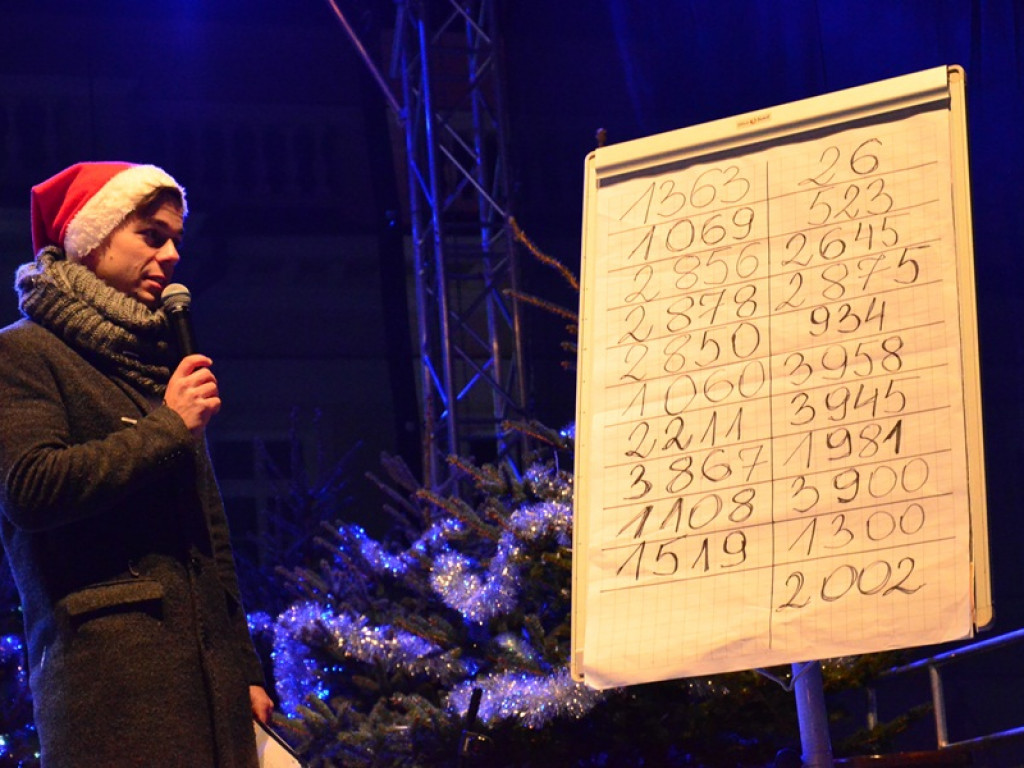 1363 26
1069 523
2856 2645
2878 2875
2850 934
1060 3958
2211 3945
3867 1981
1108 3900
1519 1300
2002